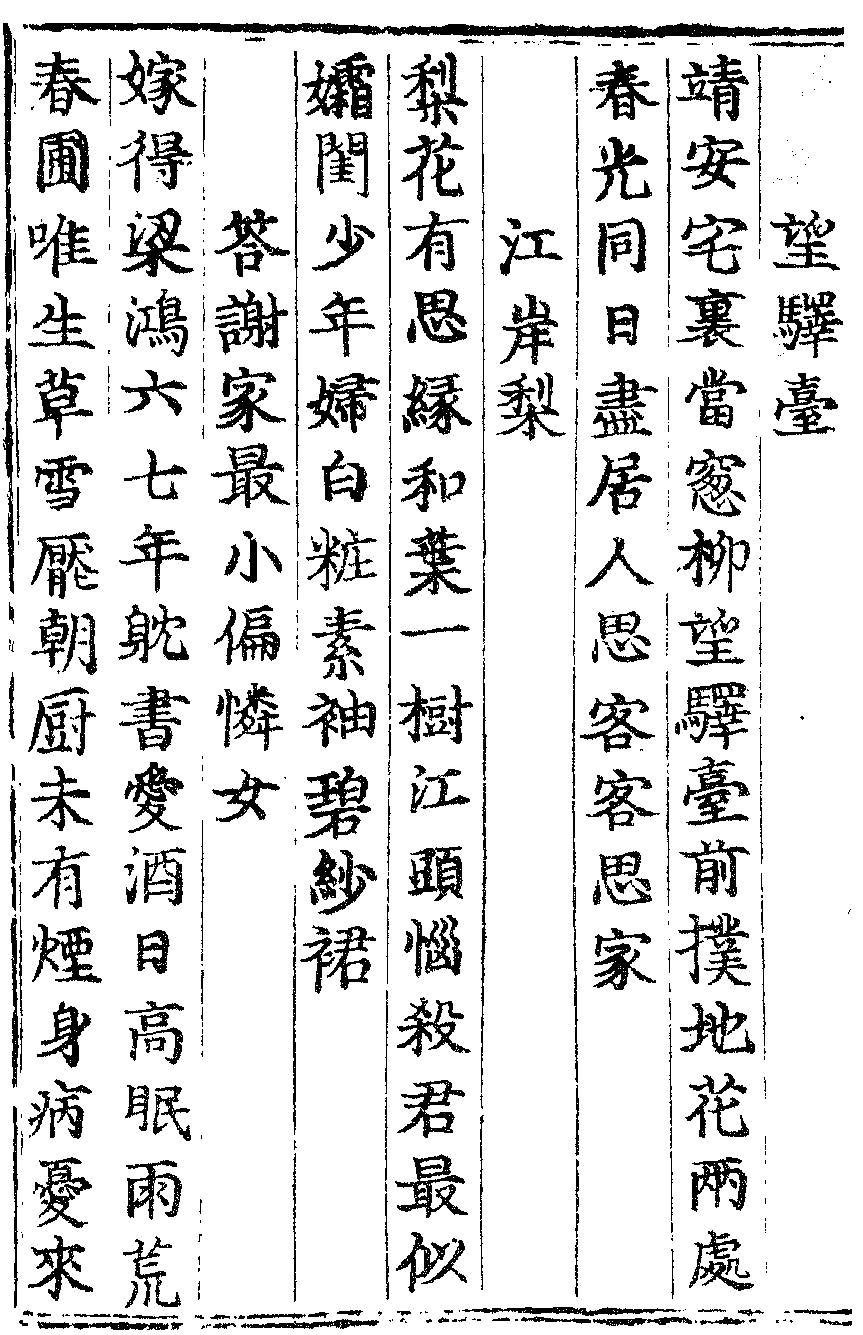 望驛臺
靖安宅裏當窓柳望驛臺前撲地花兩處
春光同日盡居人思客客思家
江岸梨
梨花有思緣和葉一樹江頭惱殺君最似
孀閨少年婦白粧素袖碧紗裙
荅謝家最小偏憐女
嫁得梁鴻六七年躭書愛酒日高眠雨荒
春圃唯生草雪厭朝厨未有煙身病憂來